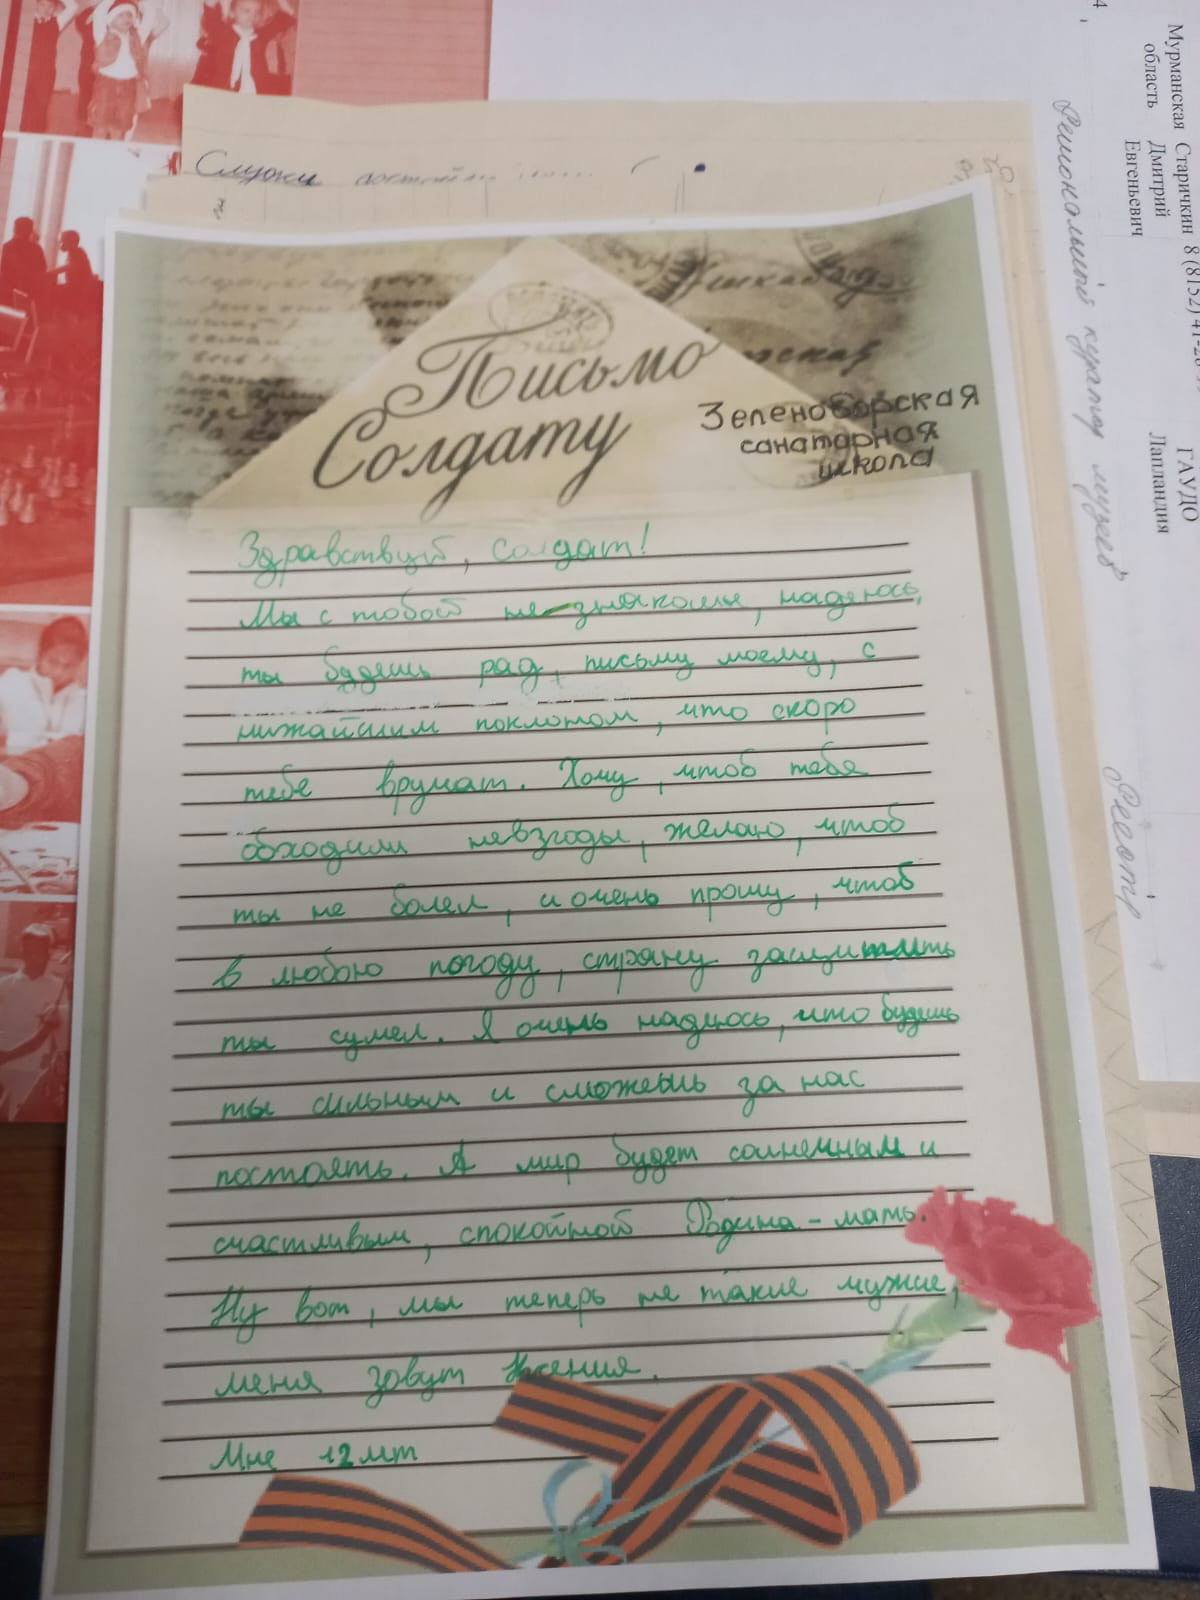 Служи
Письмо
Солдату
Зеленоборская
санаторная
школа
Здравствуй, солдат!
Мы с тобой не знакомы, надеюсь,
ты будешь рад, письму моему, с
нижайшим поклоном, что скоро
тебе вручат. Хочу, чтоб тебя
обходили невзгоды, желаю, чтоб
ты не болел, и очень прошу, чтоб
в любою погоду, страну защитить
ты сумел. Я очень надеюсь, что будешь
ты сильным и сможешь за нас
постоять. А мир будет солнечным и
счастливым, спокойной Родина-мать.
Ну вот, мы теперь не такие чужие,
меня зовут Ксения.
Мне 12 лет
Мурманская
область
Старичкин
Дмитрий
Евгеньевич
8 (8152) 41-
ГАУДО
Лапландия
Региональный куратор музеев
Реестр